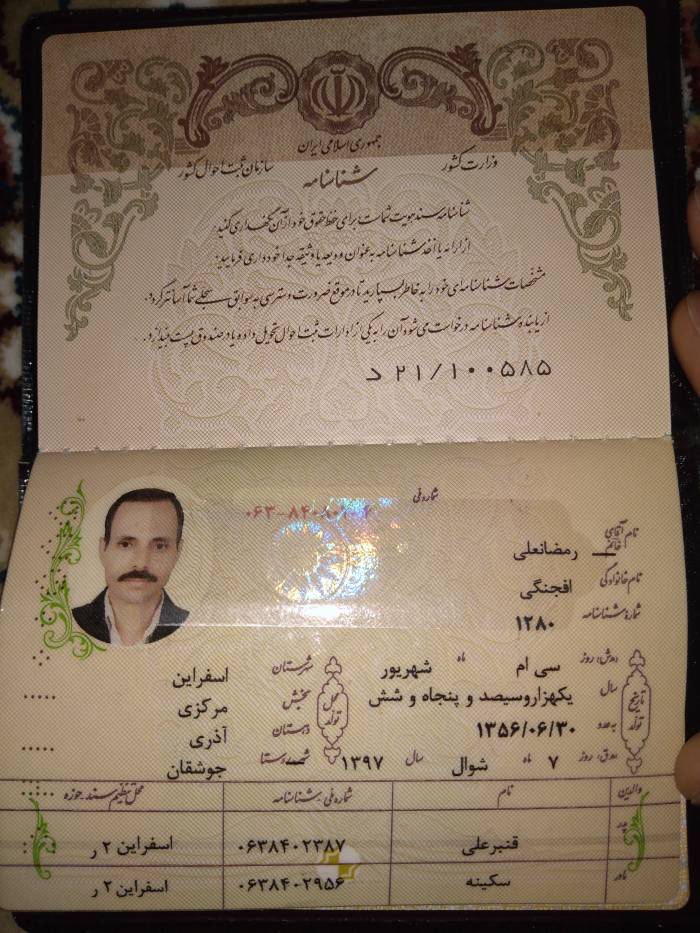 جمهوری اسلامی ایران
وزارت کشور
سازمان ثبت احوال کشور
شناسنامه
شناسنامه سند هویت شماست برای حفظ حقوق خود از آن نگهداری کنید.
از ارائه یا اخذ شناسنامه به عنوان ودیعه یا وثیقه جداً خودداری فرمایید.
مشخصات شناسنامه‌ای خود را به خاطر بسپارید تا در موقع ضرورت دسترسی به سوابق سجلی شما آسانتر گردد.
از یابنده شناسنامه درخواست می‌شود آن را به یکی از ادارات ثبت احوال تحویل داده یا در صندوق پست بیندازد.
د ۲۱/۱۰۰۵۸۵
شماره ملی
نام آقای خانم رمضانعلی
نام خانوادگی افجنگی
شماره شناسنامه ۱۲۸۰
تاریخ تولد
ه‍.ش: روز سی ام ماه شهریور
سال یکهزاروسیصد و پنجاه و شش
به عدد ۱۳۵۶/۰۶/۳۰
ه‍.ق: روز ۷ ماه شوال سال ۱۳۹۷
محل تولد
شهرستان اسفراین
بخش مرکزی
دهستان آذری
شهر/روستا جوشقان
والدین نام شماره ملی - شناسنامه محل تنظیم سند حوزه
پدر قنبرعلی ۰۶۳۸۴۰۲۳۸۷ اسفراین ۲ ر
مادر سکینه ۰۶۳۸۴۰۲۹۵۶ اسفراین ۲ ر